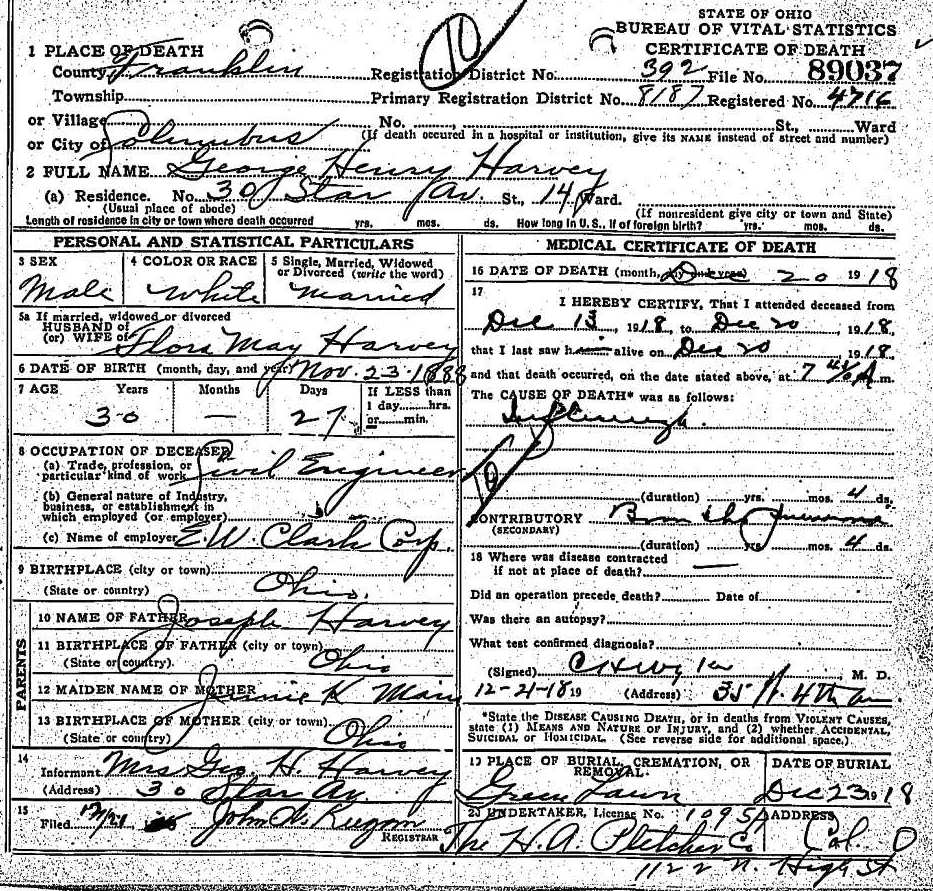 STATE OF OHIO
BUREAU OF VITAL STATISTICS
CERTIFICATE OF DEATH
1 PLACE OF DEATH
County Franklin Registration District No. 392 File No. 89037
Township Primary Registration District No. 8187 Registered No. 4716
or Village No. , St., Ward
or City of Columbus (If death occured in a hospital or institution, give its NAME instead of street and number)
2 FULL NAME George Henry Harvey
(a) Residence. No. 30 Star Av. St., 14 Ward.
(Usual place of abode) (If nonresident give city or town and State)
Length of residence in city or town where death occurred yrs. mos. ds. How long in U.S., if of foreign birth? yrs. mos. ds.
PERSONAL AND STATISTICAL PARTICULARS
3 SEX 4 COLOR OR RACE 5 Single, Married, Widowed
or Divorced (write the word)
Male White Married
5a If married, widowed or divorced
HUSBAND of
(or) WIFE of Flora May Harvey
6 DATE OF BIRTH (month, day, and year) Nov. 23-1888
7 AGE Years Months Days If LESS than
1 day hrs.
or min.
30 — 27
8 OCCUPATION OF DECEASED
(a) Trade, profession, or
particular kind of work Civil Engineer
(b) General nature of Industry,
business, or establishment in
which employed (or employer)
(c) Name of employer E.W. Clark Corp.
9 BIRTHPLACE (city or town)
(State or country) Ohio.
PARENTS
10 NAME OF FATHER Joseph Harvey
11 BIRTHPLACE OF FATHER (city or town)
(State or country). Ohio
12 MAIDEN NAME OF MOTHER Jennie K.
13 BIRTHPLACE OF MOTHER (city or town)
(State or country) Ohio
14
Informant Mrs Geo. H. Harvey
(Address) 30 Star Av.
15
Filed 12/21 John
REGISTRAR
MEDICAL CERTIFICATE OF DEATH
16 DATE OF DEATH (month, day and year) Dec 20 1918
17
I HEREBY CERTIFY, That I attended deceased from
Dec 13, 1918, to Dec 20, 1918.
that I last saw him alive on Dec 20 1918.
and that death occurred, on the date stated above, at 7 A m.
The CAUSE OF DEATH* was as follows:
Influenza.
10
(duration) yrs. mos. 4 ds.
CONTRIBUTORY
(SECONDARY)
(duration) yrs. mos. 4 ds.
18 Where was disease contracted
if not at place of death? —
Did an operation precede death? Date of
Was there an autopsy?
What test confirmed diagnosis?
(Signed) M. D.
12-21-1819 (Address) 35 4th
*State the DISEASE CAUSING DEATH, or in deaths from VIOLENT CAUSES,
state (1) MEANS AND NATURE OF INJURY, and (2) whether ACCIDENTAL,
SUICIDAL or HOMICIDAL. (See reverse side for additional space.)
19 PLACE OF BURIAL, CREMATION, OR
REMOVAL. DATE OF BURIAL
Green Lawn Dec 23 1918
20 UNDERTAKER, License No. 1095A ADDRESS
The H. A. Pletcher Co Col. O
1122 N. High St